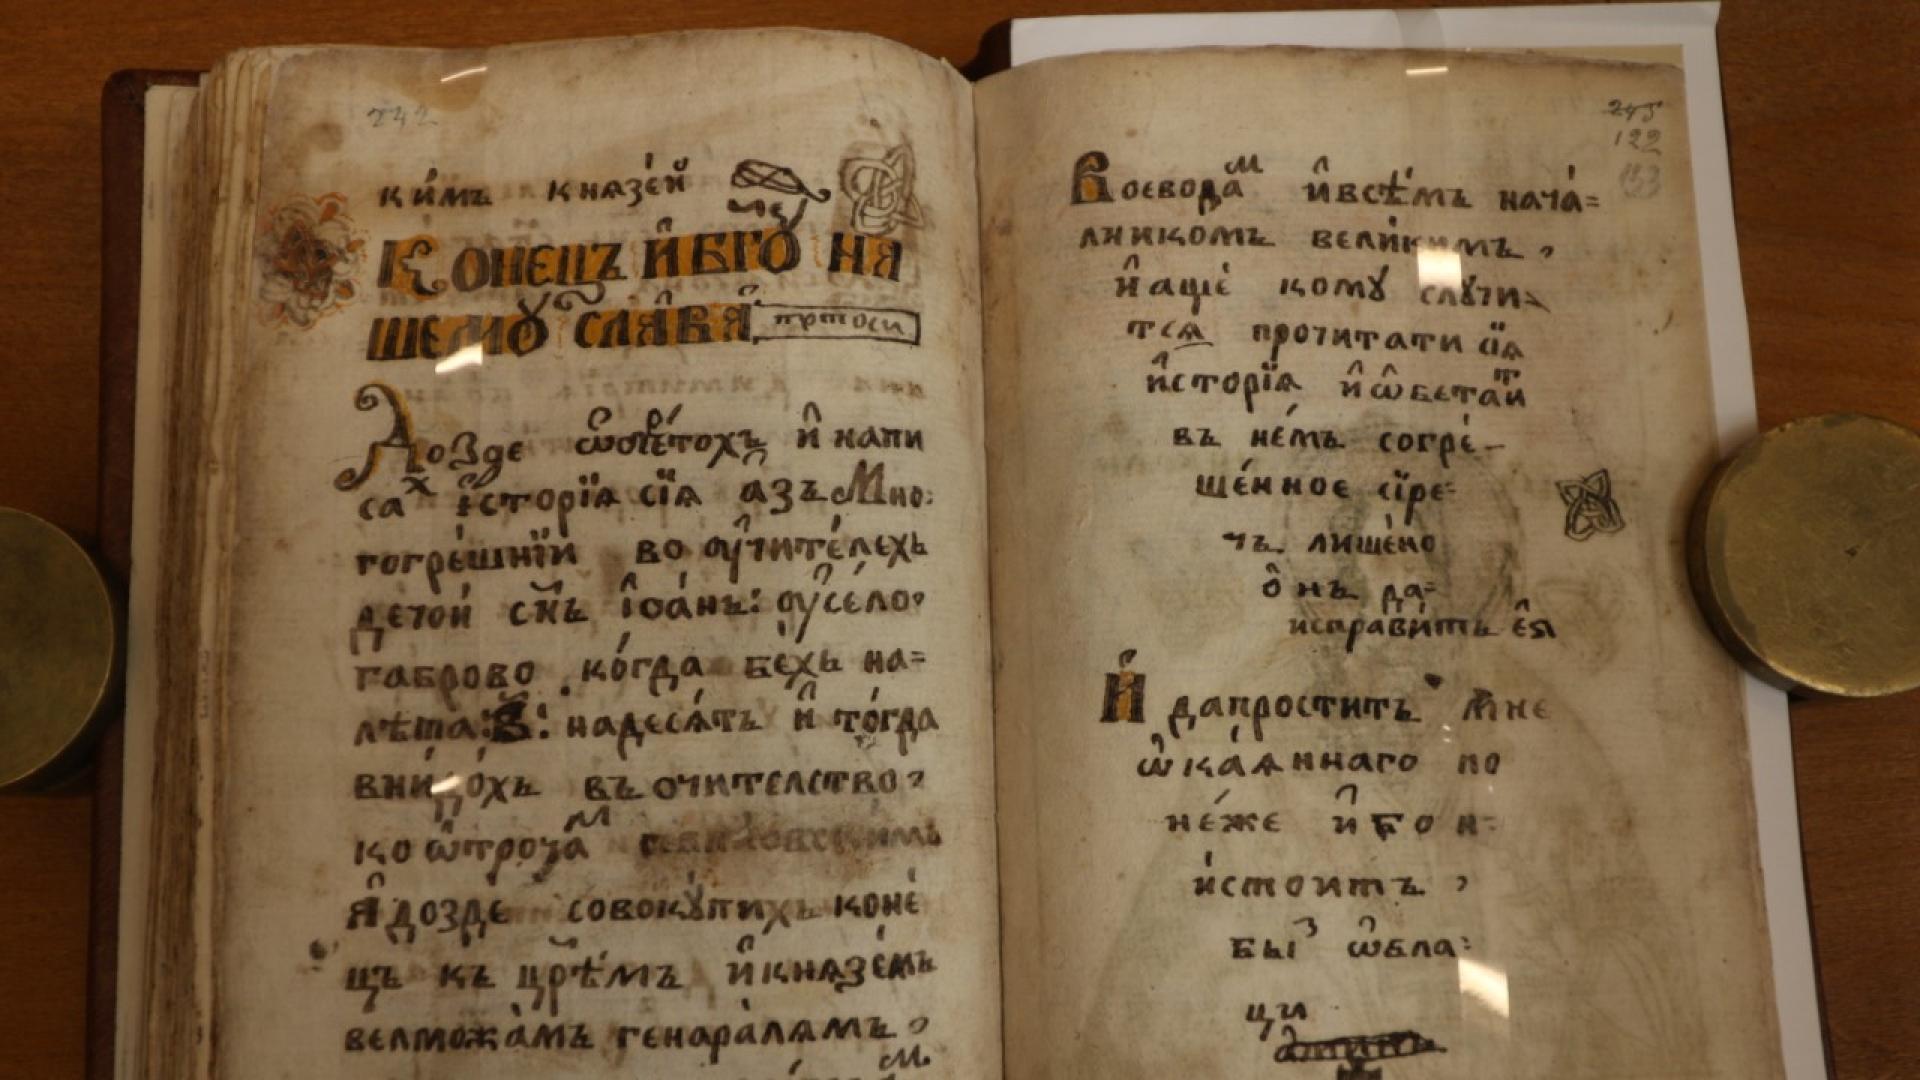 242
ки́мъ кнѧзе́й
Конецъ и҆ бг҃ꙋ на
шемꙋ слава
До зде ѡ҆брѣ́тохъ и҆ напи
сахⷯ і҆сторїѧ сїѧ азъ Мно:
гогре́шнїи во ꙋ҆чите́лехъ
детой сн҃ъ І҆оа́нъ: ꙋ҆ се́ло
габрово ко́гда бе́хъ на=
лѣта: в҃: надеся́ть и҆ то́гда
вни́дохъ въ очителство
ко ѿроча́ᴹ
Я҆ дозде́ совокꙋпихъ коне́
цъ къ цр҃ѣмъ и҆ кнѧзе́мъ
велможа́мъ генара́ламъ,
245
122
133
Воевода́ᴹ и҆ всѣ́мъ нача́=
лникомъ вели́кимъ,
и҆ аще́ комꙋ слꙋ́чи=
тсѧ прочитати сїѧ
и҆сторїѧ и҆ ѡ҆бетаⷮи
въ не́мъ согре́-
ше́нное сїре=
чъ лише́но
о҆нъ да=
исправи́тъ є҆я
И҆ да простить мне
ѡ҆кая́ннаго по
не́же и҆ бг҃ о н=
и́стоитъ,
быᶾ ѡ҆бла=
цы